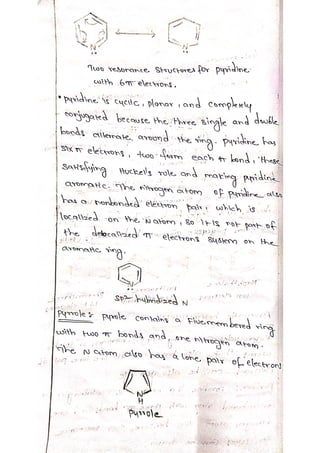 N
N
Two resonance structures for pyridine
with 6π electrons.
• pyridine is cyclic, planar, and completely
conjugated because the three single and double
bonds alternate around the ring. pyridine has
six π electrons, two from each π bond, these
satisfying Huckel's rule and making pyridine
aromatic. The nitrogen atom of pyridine also
has a nonbonded electron pair, which is
localized on the N atom, so it is not part of
the delocalized π electrons system on the
aromatic ring.
N
sp2 hybridized N
Pyrrole: pyrrole contains a Five membered ring
with two π bonds and one nitrogen atom.
The N atom also has a lone pair of electrons
N
H
Pyrrole